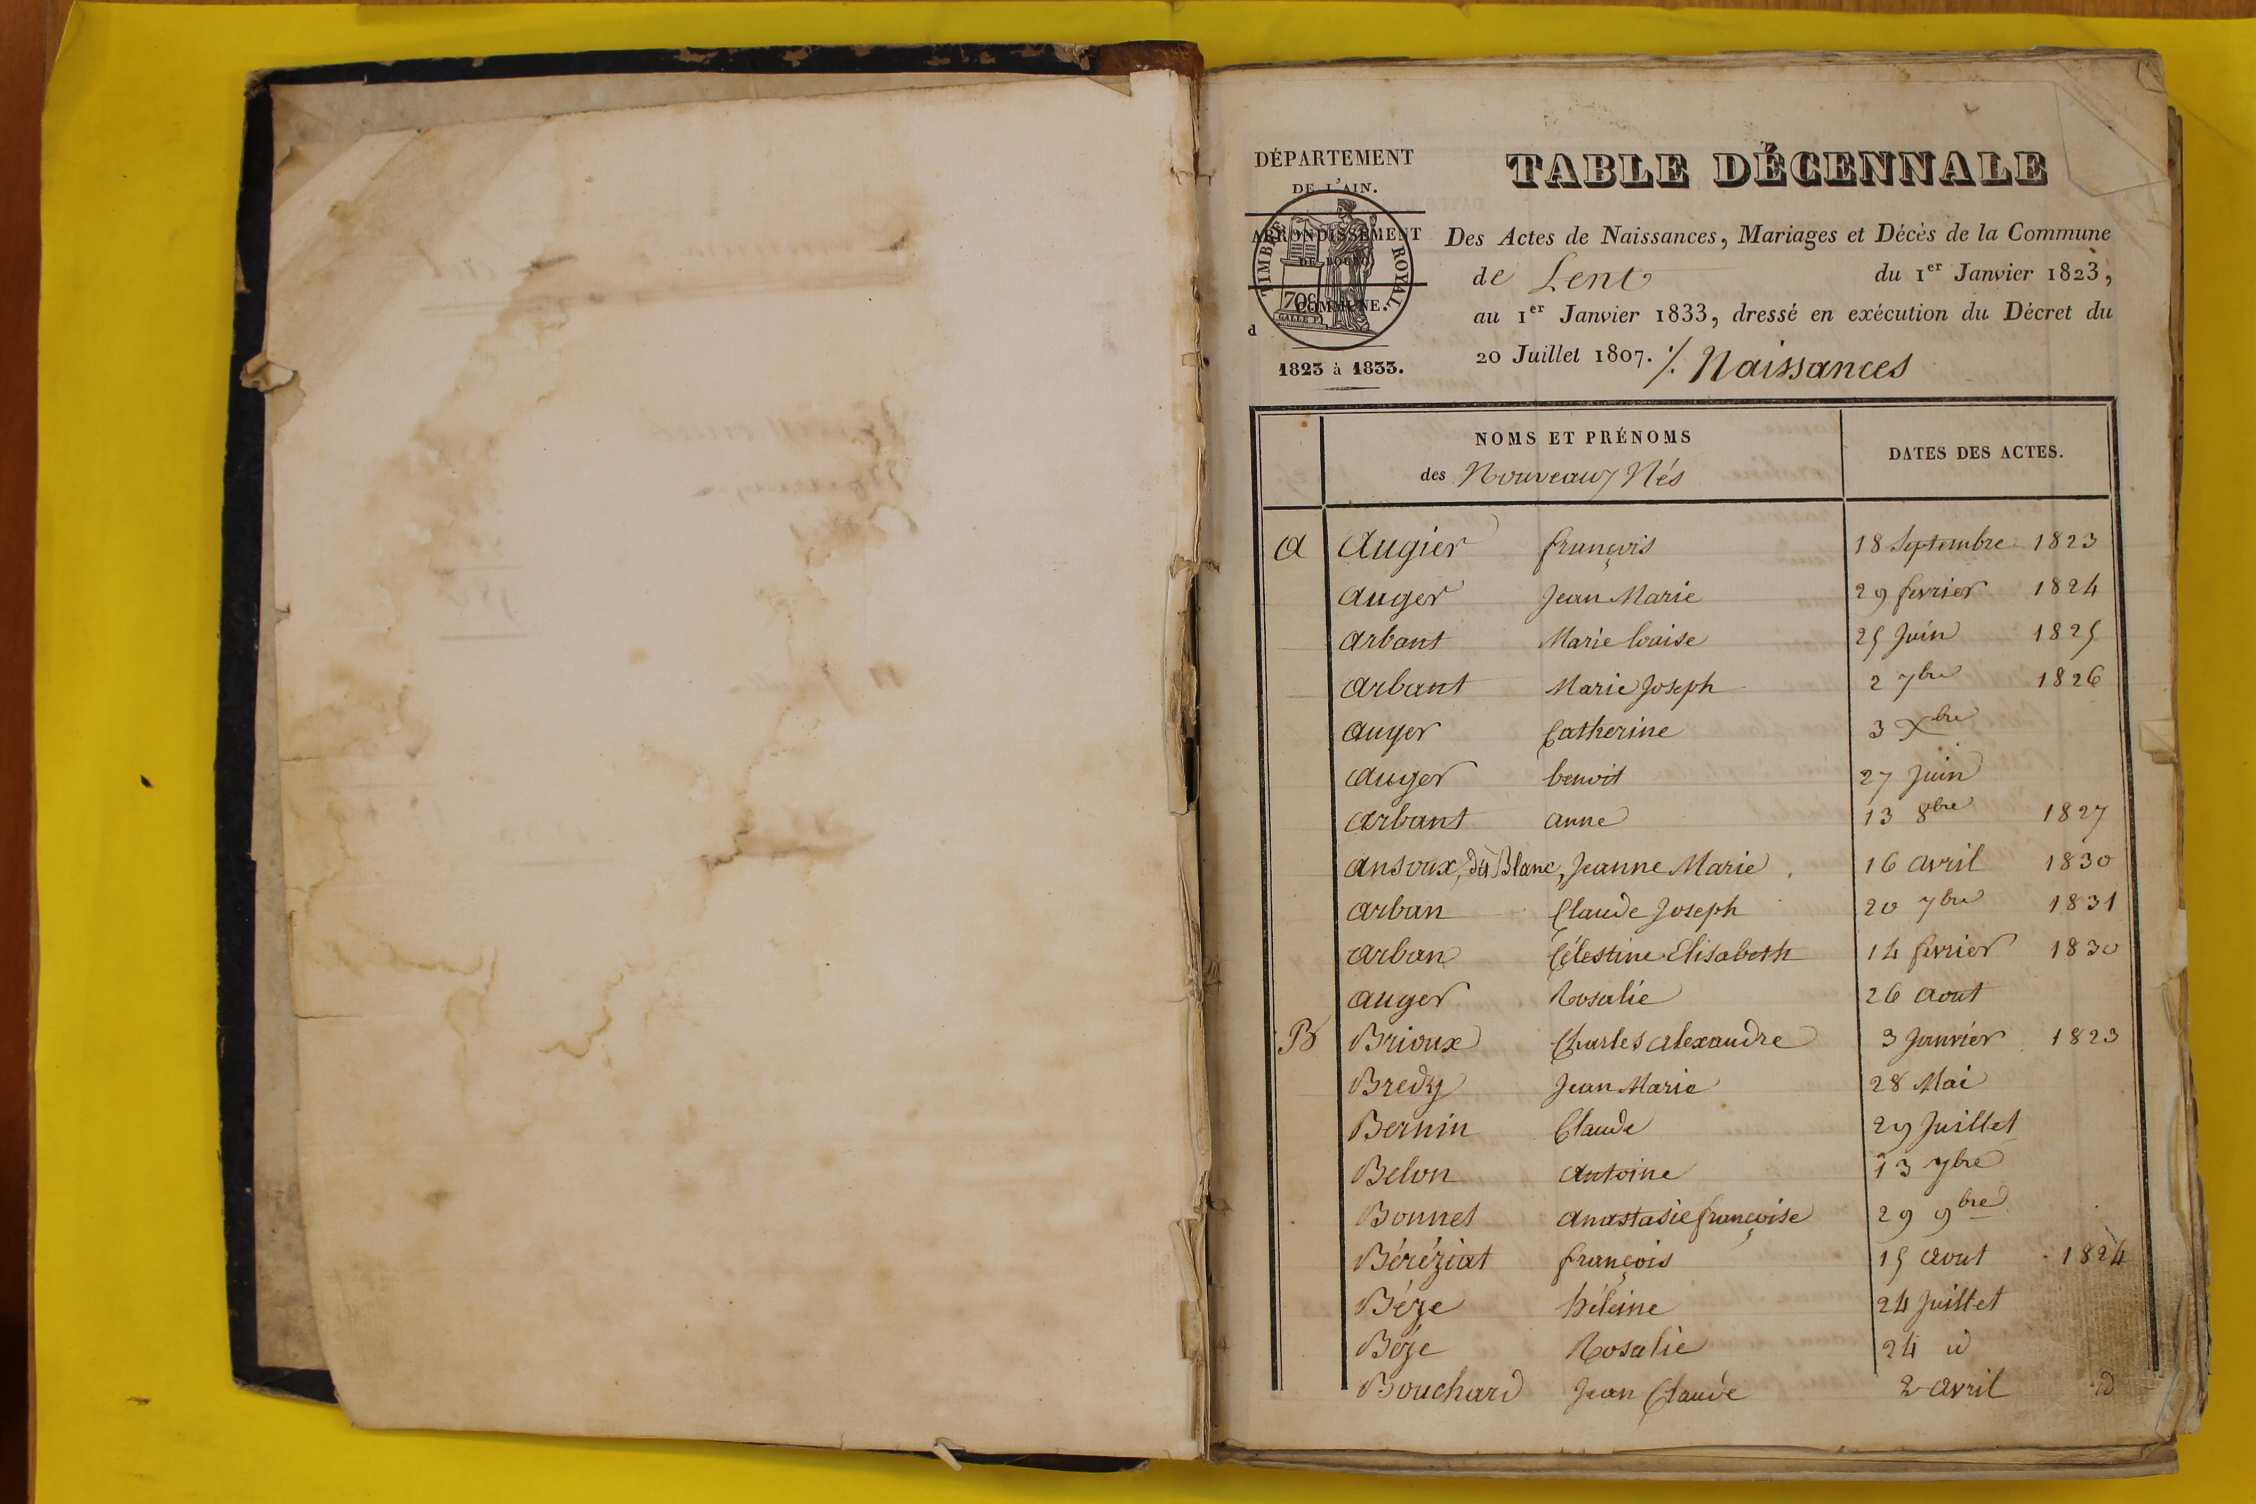 DÉPARTEMENT
DE L'AIN.
ARRONDISSEMENT
DE BOURG.
COMMUNE.
d
1823 à 1833.
TIMBRE ROYAL
70c
GALLE F.
TABLE DÉCENNALE
Des Actes de Naissances, Mariages et Décès de la Commune
de Lent du 1er Janvier 1823,
au 1er Janvier 1833, dressé en exécution du Décret du
20 Juillet 1807. ./. Naissances
NOMS ET PRÉNOMS
des Nouveaux Nés
DATES DES ACTES.
A Augier françois 18 Septembre 1823
auger Jean Marie 29 fevrier 1824
arbant Marie Louise 25 Juin 1825
arbant Marie Joseph 2 7bre 1826
auger Catherine 3 Xbre
auger benoit 27 Juin
arbant anne 13 8bre 1827
ansoux, dit Blanc, Jeanne Marie 16 avril 1830
arban Claude Joseph 20 7bre 1831
arban Célestine Elisabeth 14 fevrier 1830
auger Rosalie 26 aout
B Brioux Charles alexandre 3 Janvier 1823
Bredy Jean Marie 28 Mai
Bernin Claude 29 Juillet
Belon antoine 13 7bre
Bonnet anastasie françoise 29 9bre
Béréziat françois 15 aout 1824
Béze héleine 24 Juillet
Béze Rosalie 24 id
Bouchard Jean Claude 2 avril id